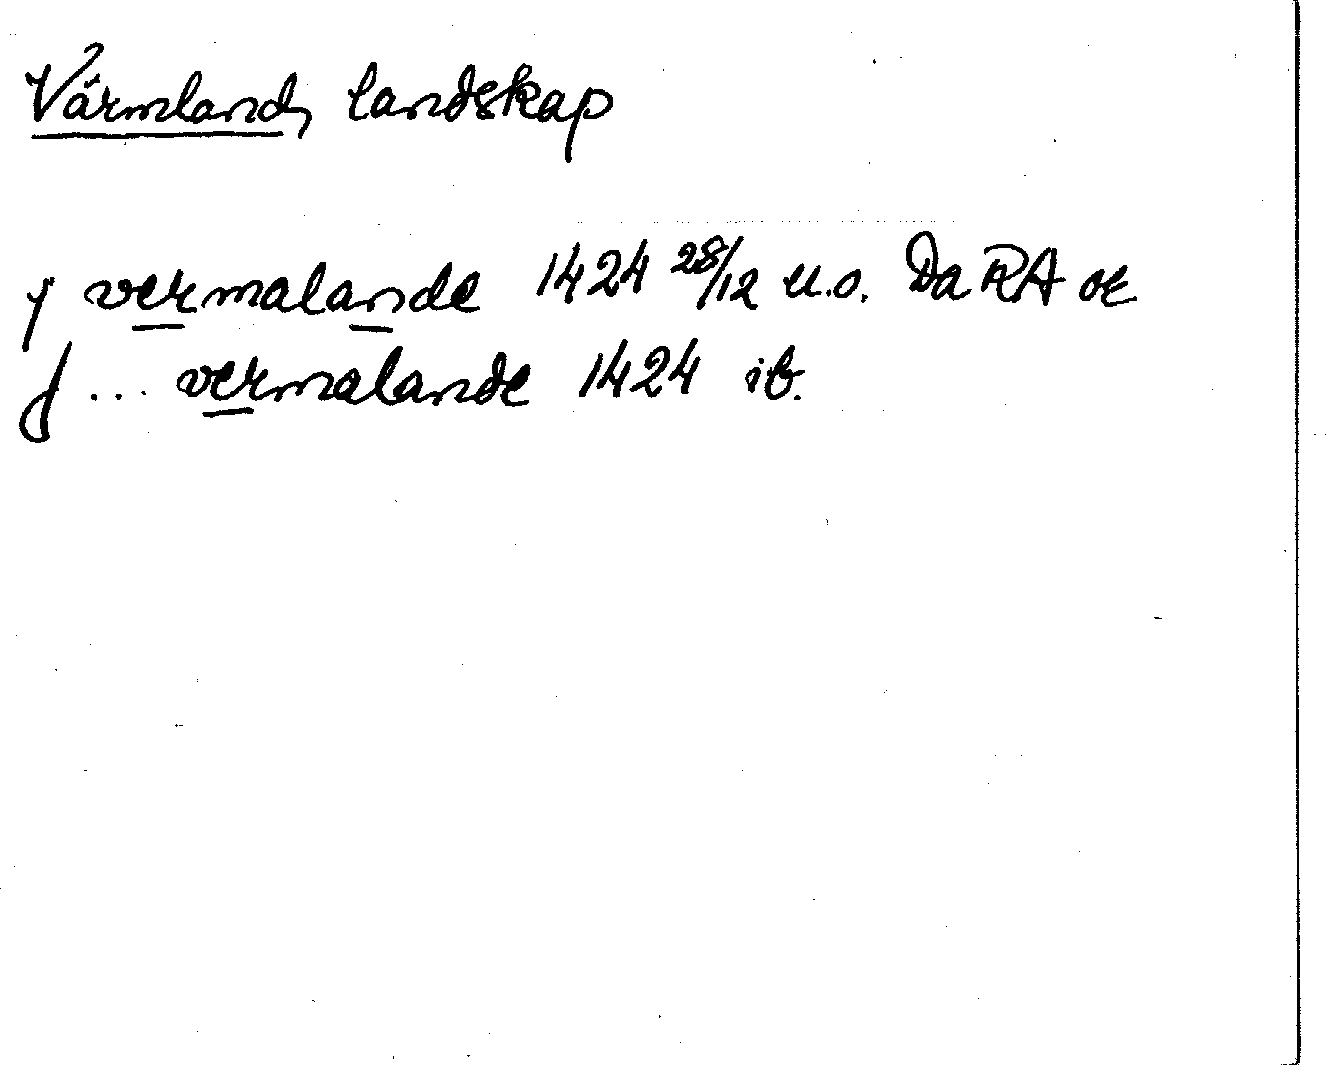 Värmland, landskap
j vermalande 1424 28/12 u.o. DaRA or
J ... vermalande 1424 ib.